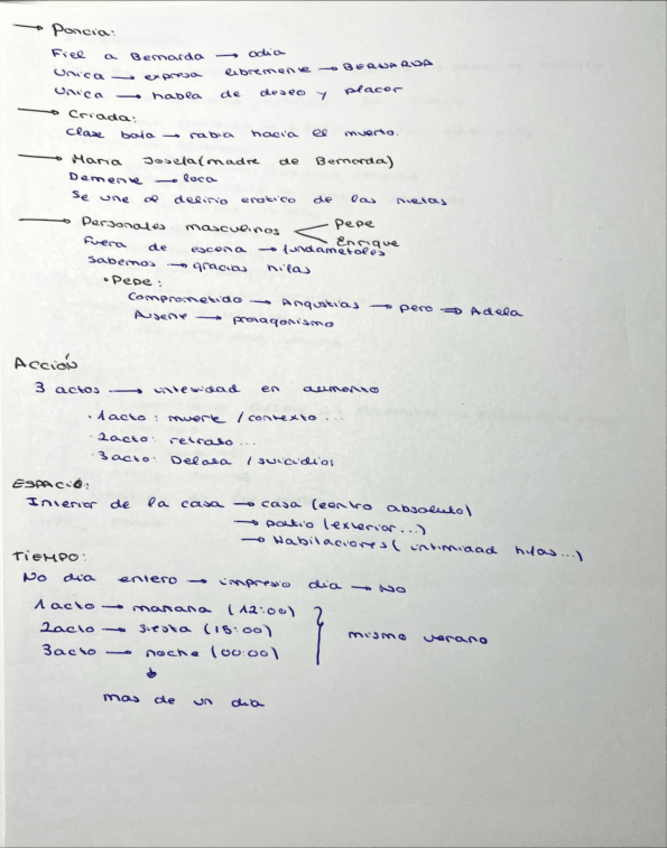 → Poncia:
Fiel a Bernarda → odia
Única → expresa libremente → BERNARDA
Única → habla de deseo y placer
→ Criada:
Clase baja → rabia hacia el muerto.
→ Maria Josefa (madre de Bernarda)
Demente → loca
Se une al delirio erotico de las nietas
→ Personajes masculinos < Pepe
Enrique
Fuera de escena → fundametales
Sabemos → gracias hijas
• Pepe:
Comprometido → Angustias → pero ⇒ Adela
Ausente → protagonismo
Acción
3 actos → intesidad en aumento
· 1acto: muerte / contexto ...
· 2acto: retrato ...
· 3acto: Delata / suicidios
ESPACIO:
Interior de la casa → casa (centro absoluto)
→ patio (exterior...)
→ Habitaciones (intimidad hijas...)
TIEMPO:
No dia entero → impresio dia → No
1acto → mañana (12:00)
2acto → siesta (15:00) } mismo verano
3acto → noche (00:00)
↓
mas de un dia